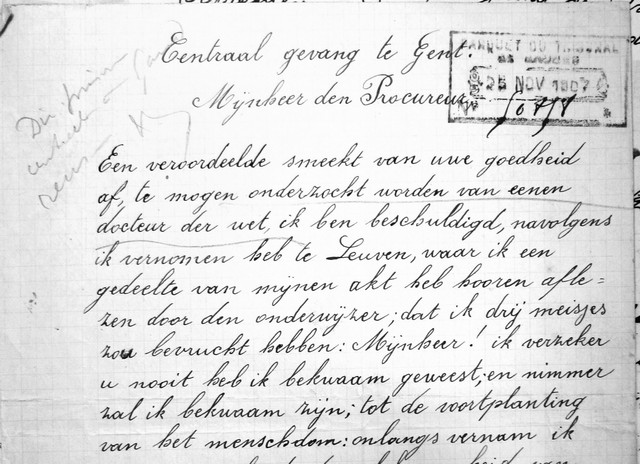 Centraal gevang te Gent.
PARQUET DU TRIBUNAL
26 NOV 1907
Mijnheer den Procureur
Een veroordeelde smeekt van uwe goedheid
af, te mogen onderzocht worden van eenen
docteur der wet, ik ben beschuldigd, navolgens
ik vernomen heb te Leuven, waar ik een
gedeelte van mijnen akt heb hooren afle=
zen door den onderwijzer; dat ik drij meisjes
zou bevrucht hebben: Mijnheer! ik verzeker
u nooit heb ik bekwaam geweest; en nimmer
zal ik bekwaam zijn; tot de voortplanting
van het menschdom: onlangs vernam ik